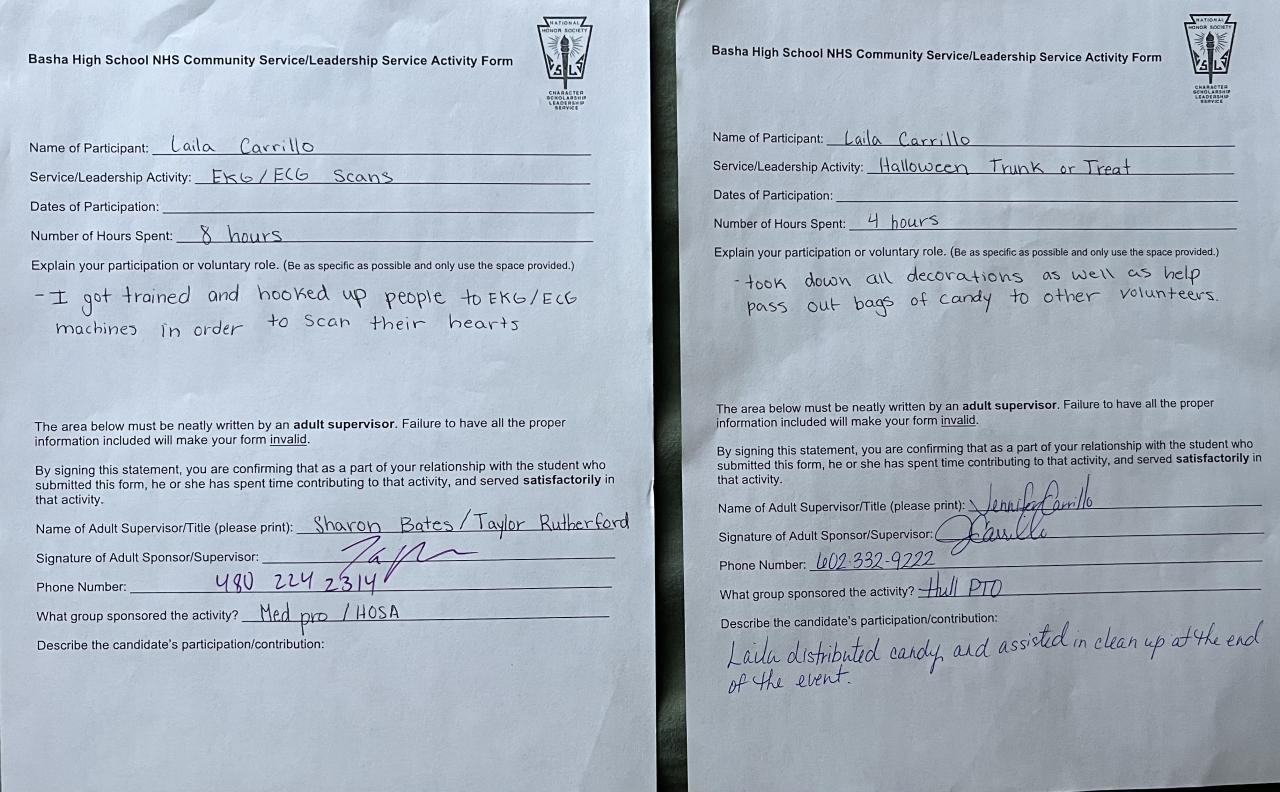 Basha High School NHS Community Service/Leadership Service Activity Form
NATIONAL
HONOR SOCIETY
C S L S
CHARACTER
SCHOLARSHIP
LEADERSHIP
SERVICE
Name of Participant: Laila Carrillo
Service/Leadership Activity: EKG/ECG Scans
Dates of Participation:
Number of Hours Spent: 8 hours
Explain your participation or voluntary role. (Be as specific as possible and only use the space provided.)
- I got trained and hooked up people to EKG/ECG
machines in order to scan their hearts
The area below must be neatly written by an adult supervisor. Failure to have all the proper
information included will make your form invalid.
By signing this statement, you are confirming that as a part of your relationship with the student who
submitted this form, he or she has spent time contributing to that activity, and served satisfactorily in
that activity.
Name of Adult Supervisor/Title (please print): Sharon Bates/Taylor Rutherford
Signature of Adult Sponsor/Supervisor:
Phone Number: 480 224 2314
What group sponsored the activity? Med pro /HOSA
Describe the candidate's participation/contribution:
Basha High School NHS Community Service/Leadership Service Activity Form
NATIONAL
HONOR SOCIETY
C S L S
CHARACTER
SCHOLARSHIP
LEADERSHIP
SERVICE
Name of Participant: Laila Carrillo
Service/Leadership Activity: Halloween Trunk or Treat
Dates of Participation:
Number of Hours Spent: 4 hours
Explain your participation or voluntary role. (Be as specific as possible and only use the space provided.)
- took down all decorations as well as help
pass out bags of candy to other volunteers.
The area below must be neatly written by an adult supervisor. Failure to have all the proper
information included will make your form invalid.
By signing this statement, you are confirming that as a part of your relationship with the student who
submitted this form, he or she has spent time contributing to that activity, and served satisfactorily in
that activity.
Name of Adult Supervisor/Title (please print): Jennifer Carrillo
Signature of Adult Sponsor/Supervisor: JCarrillo
Phone Number: 602-332-9222
What group sponsored the activity? Hull PTO
Describe the candidate's participation/contribution:
Laila distributed candy, and assisted in clean up at the end
of the event.